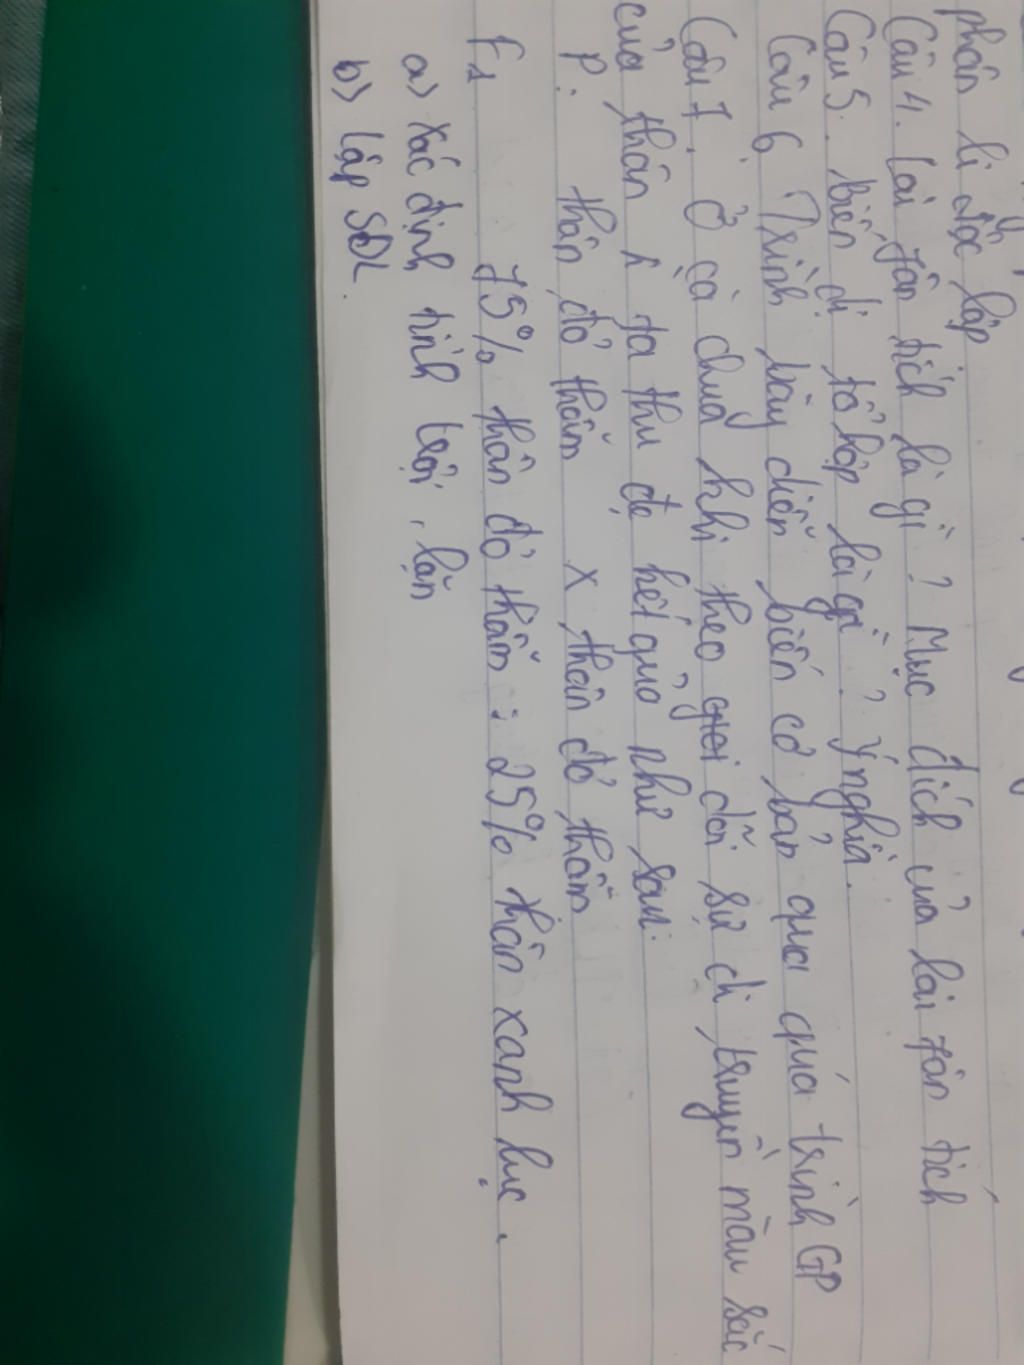 phân li độc lập
Câu 4. Lai phân tích là gì? Mục đích của lai phân tích
Câu 5. biến dị tổ hợp là gì? Ý nghĩa.
Câu 6. Trình bày diễn biến cơ bản qua quá trình GP
Câu 7. Ở cà chua khi theo dõi sự di truyền màu sắc
của thân ta thu đc kết quả như sau:
P: thân đỏ thẫm x thân đỏ thẫm
F1 75% thân đỏ thẫm : 25% thân xanh lục.
a) Xác định tính trội, lặn
b) lập SĐL.